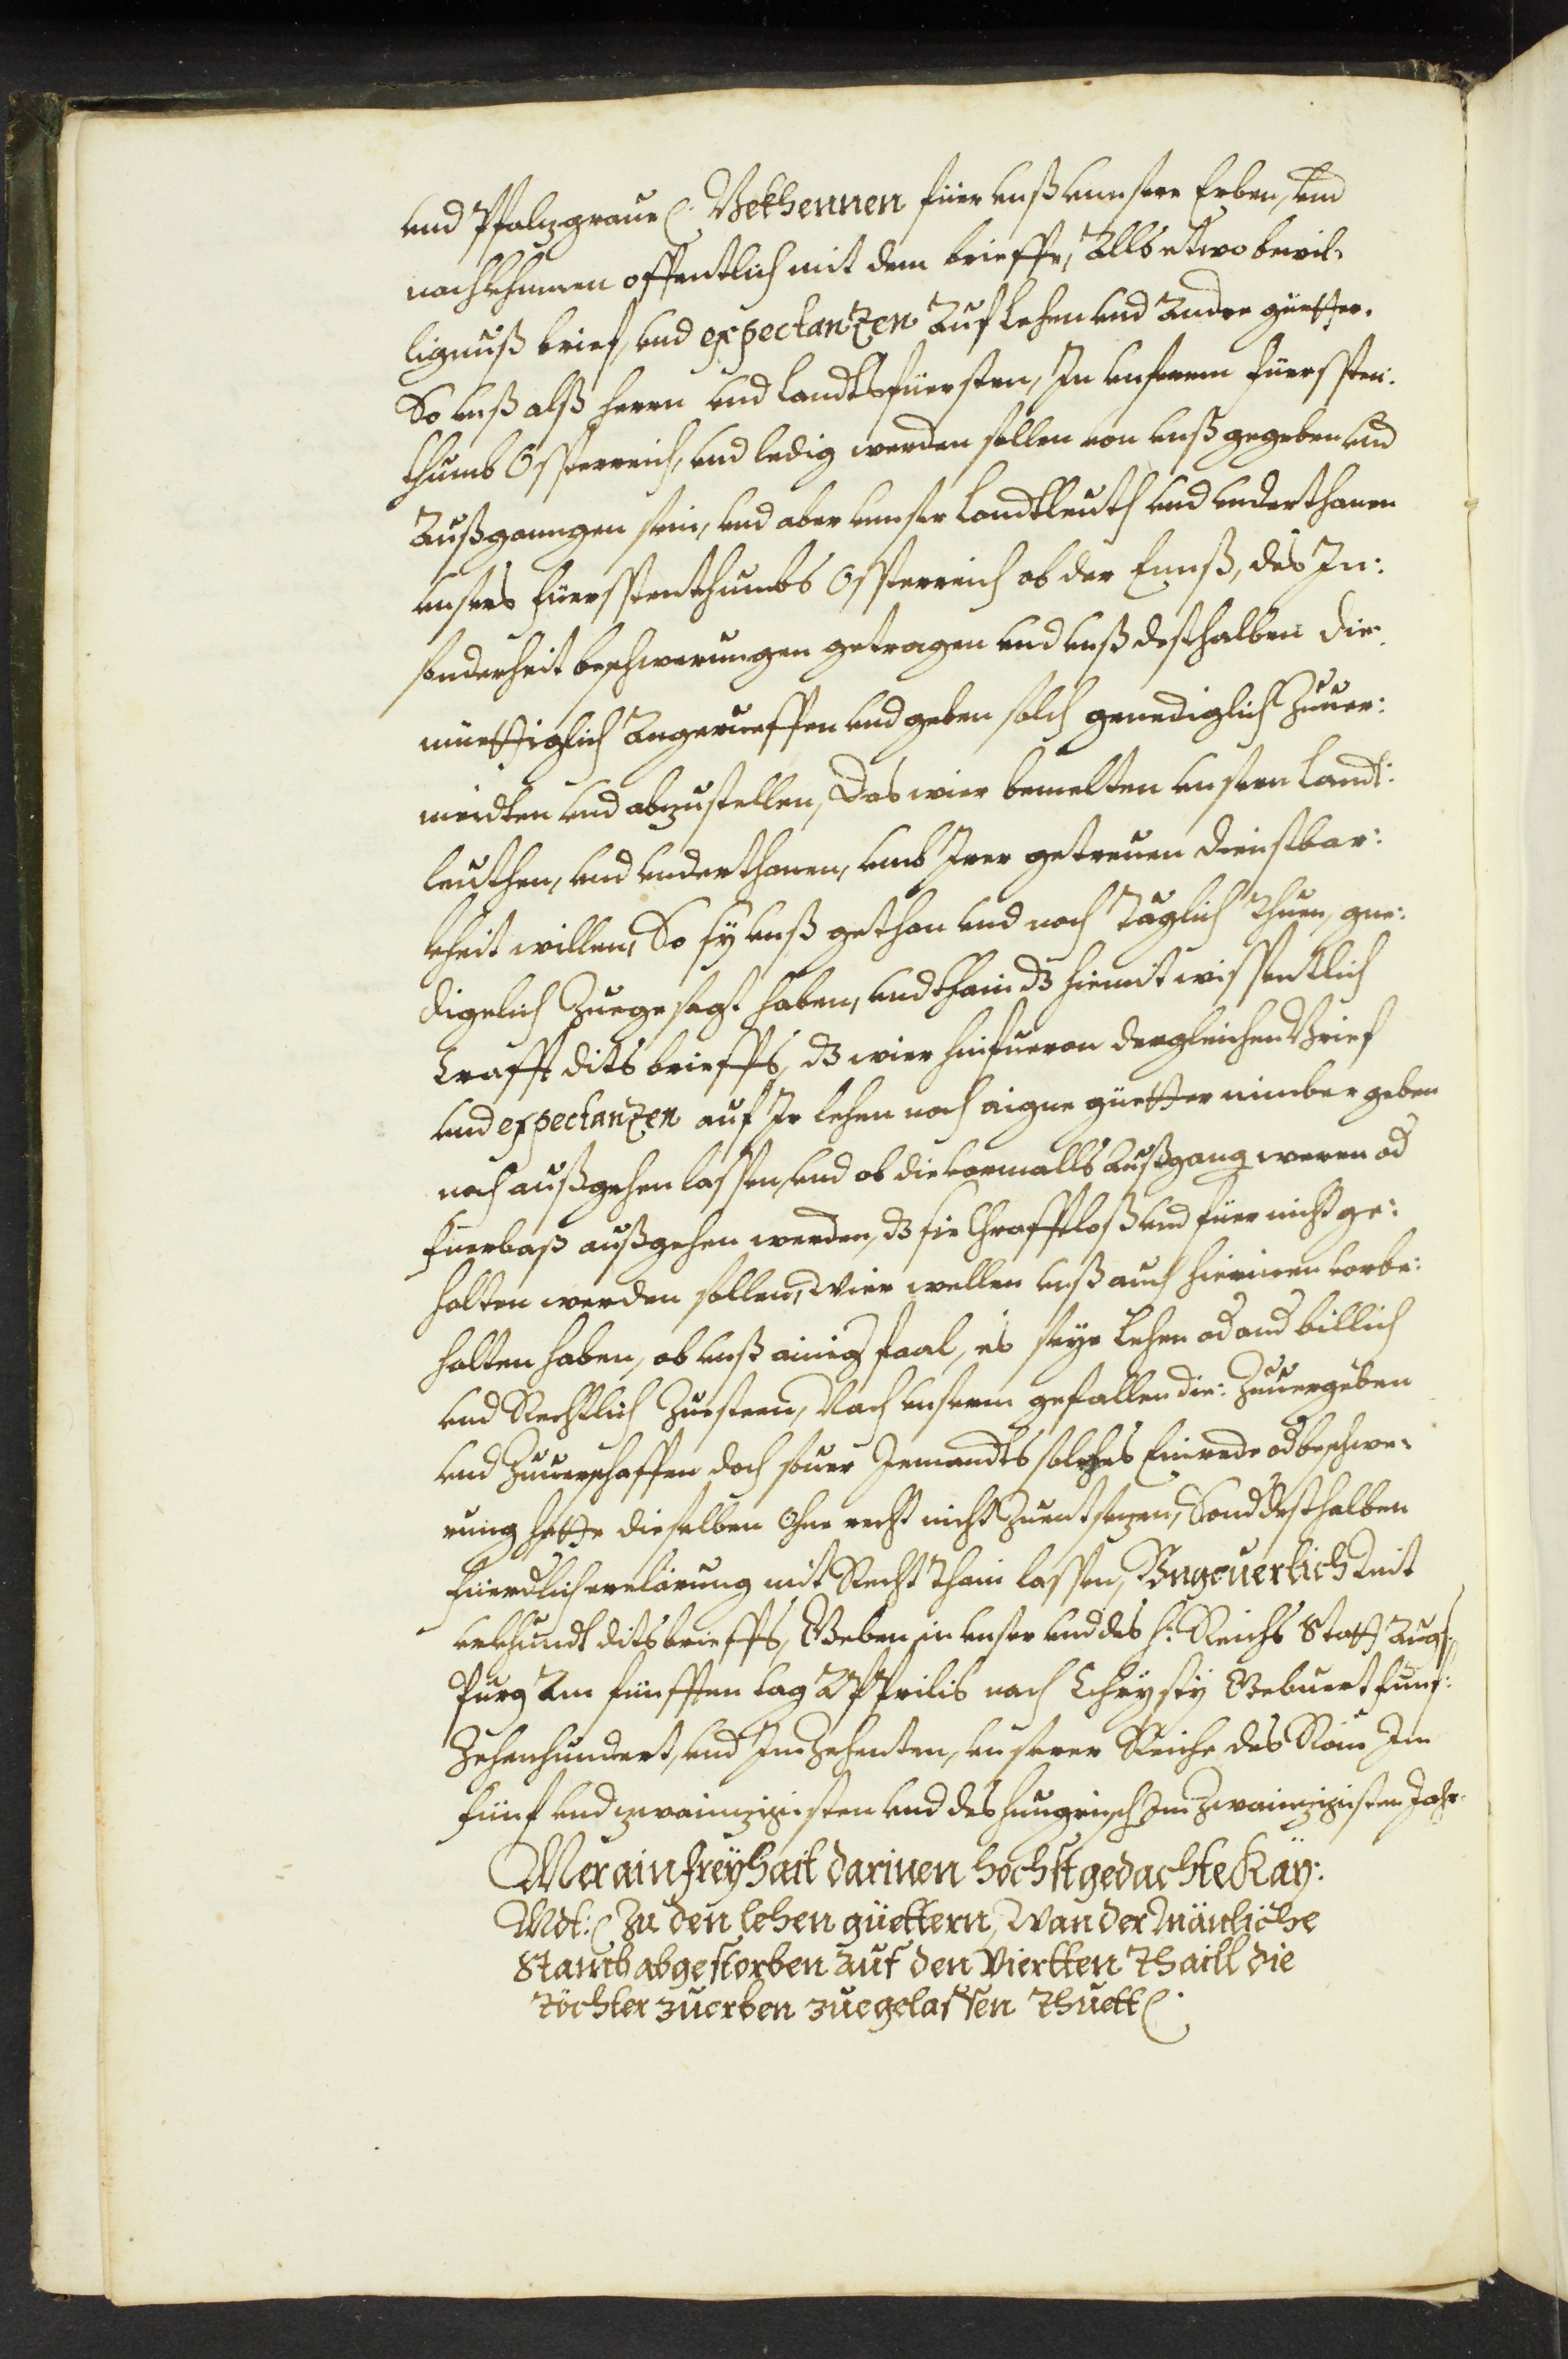 und Pfalzgraue (: Bekhennen füer unß unnsere Erben, und
nachkhumen offentlich mit dem brieffe, Allß etwo bewil¬
lignuß brief, und expectanzen Auf Lehen und Andre güetter.
So unß alß herrn und Landtsfüersten, In unserem füerssten¬
thumb Össterreich, und ledig werden sollen von unß gegeben und
Außganngen sein, und aber unnser Landtleuth und underthanen
unsers füersstenthumbs Össterreich ob der Ennß, des In:
sonderheit beschwerungen getragen und unß desthalben die¬
müettiglich Angerueffen und geben solch genediglich Zuuer:
meidten und abzustellen, Das wier bemelten unsern Landt:
leuthen, und underthanen, umb Irer getreuen dienstbar:
kheit willen, So sÿ unß gethan und noch Täglich Thuen, gne:
digelich Zuegesagt haben, und thain dz hiemit wissentlich
Crafft dits brieffs, dz wier hinfueran dergleichen Brief
und expectanzen auf Ir Lehen noch aigne güetter nimber geben
noch außgehen lassen, und ob die vormalls Außgang weren od
fuerbaß außgehen werden, dz sie Chrafftloß und füer nicht ge:
halten werden sollen, Wier wellen unß auch hierinen vorbe:
halten haben, ob unß ainig faal, es seÿe Lehen od and billich
und Rechtlich Zuesteen, Nach unserm gefallen die: Zuuergeben
und Zuuerschaffen doch souer Jemandts solches Einrede od beschwe¬
rung hette dieselben Ohne recht nicht Zuentsezen, Sond desthalben
füerdlich erclärung mit Recht Thain lassen, Vngeuerlich mit
urkhundt dits brieffs, Geben in unser und des H: Reichs Statt Aug¬
spurg Am fünfften tag APprilis nach Chrÿstÿ Gebuert funf:
Zehenhundert, und Im Zehenten, unserer Reiche des Röm Im
fünf und zwainzigisten und des Hungrisch Im Zwainzigisten Jahr.
Mer ain freÿhait darinen höchstgedachte Kaÿ:
Mdt: (: Zu den lehen güettern, Wan der Mänliche
Stamb abgestorben auf den Viertten Thaill die
Töchter zuerben zuegelassen Thuett (: